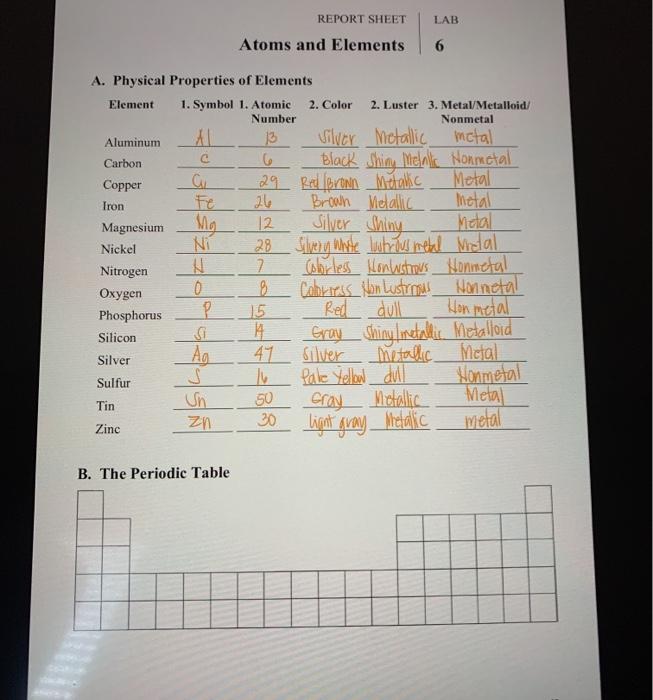 REPORT SHEET LAB
Atoms and Elements 6
A. Physical Properties of Elements
Element 1. Symbol 1. Atomic 2. Color 2. Luster 3. Metal/Metalloid/
Number Nonmetal
Aluminum Al 13 Silver Metallic metal
Carbon C 6 Black Shiny Metallic Nonmetal
Copper Cu 29 Red/Brown Metallic Metal
Iron Fe 26 Brown Metallic metal
Magnesium Mg 12 Silver Shiny Metal
Nickel Ni 28 Silvery White lustrous metal Metal
Nitrogen N 7 Colorless Nonlustrous Nonmetal
Oxygen O 8 Colorless Non Lustrous Nonmetal
Phosphorus P 15 Red dull Non metal
Silicon Si 14 Gray Shiny/metallic Metalloid
Silver Ag 47 Silver Metallic Metal
Sulfur S 16 Pale Yellow dull Nonmetal
Tin Sn 50 Gray Metallic Metal
Zinc Zn 30 light gray Metallic metal
B. The Periodic Table